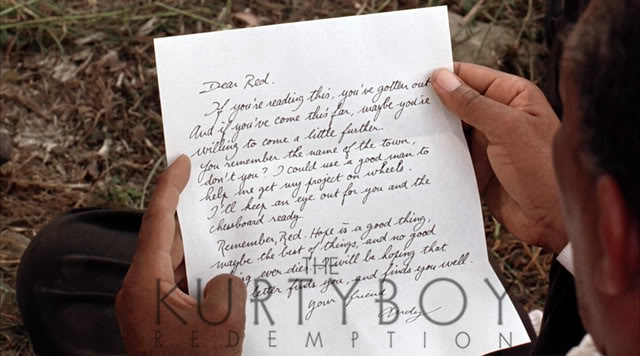 Dear Red.
If you're reading this, you've gotten out
And if you've come this far, maybe you're
willing to come a little further.
You remember the name of the town,
don't you? I could use a good man to
help me get my project on wheels.
I'll keep an eye out for you and the
chessboard ready.
Remember, Red. Hope is a good thing,
maybe the best of things, and no good
ever dies. I will be hoping that
letter finds you, and finds you well.
Your friend
Andy
THE
KURTYBOY
REDEMPTION